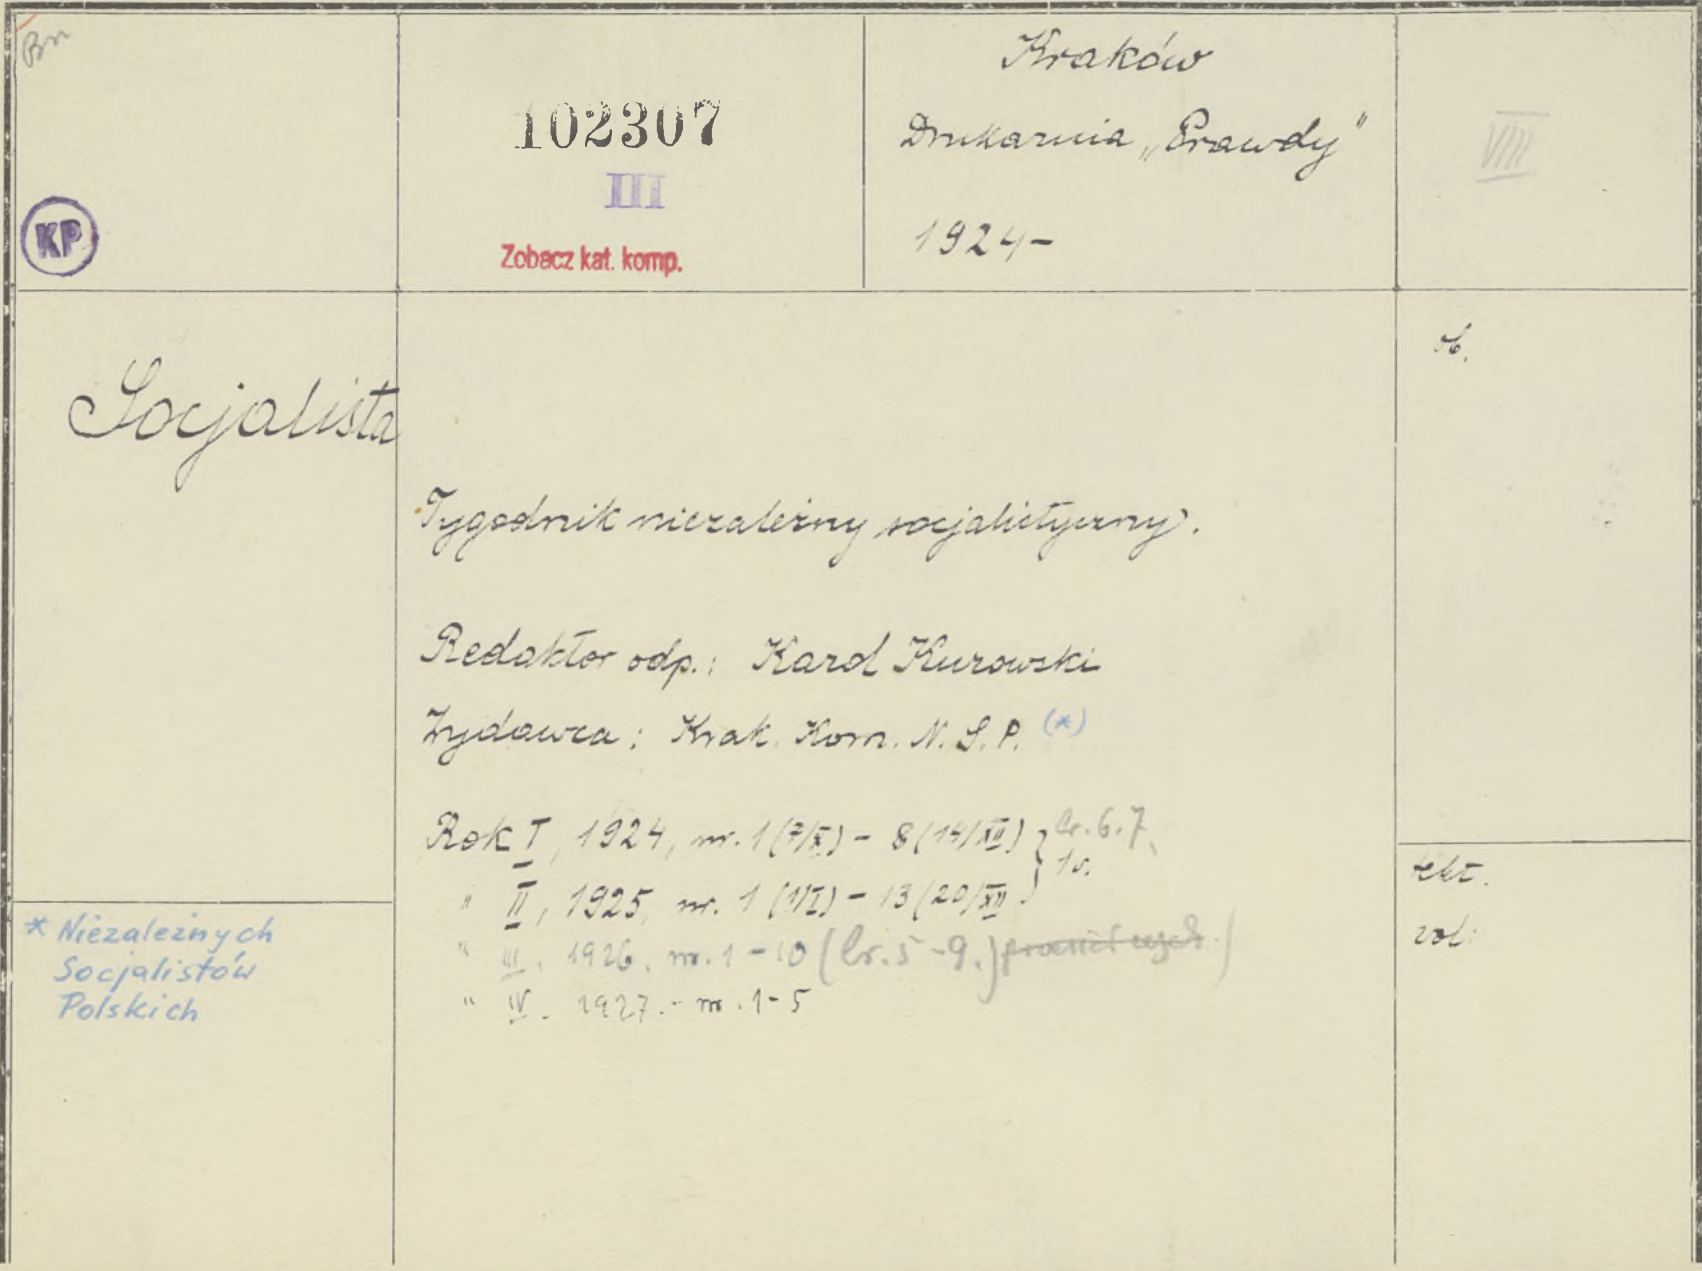 Bn
102307
III
KP
Zobacz kat. komp.
Kraków
Drukarnia „Prawdy"
1924-
VIII
Socjalista
ob.
Tygodnik niezależny socjalistyczny.
Redaktor odp.: Karol Kurowski
Wydawca: Krak. Kom. N. S. P. (*)
Rok I, 1924, nr. 1 (7/X) - 8 (14/XII) } br. 6. 7.
1v.
" II, 1925, nr. 1 (1/I) - 13 (20/XII)
" III. 1926. nr. 1 - 10 (br. 5 - 9.)
" IV. 1927. - nr. 1 - 5
tekt.
vol:
* Niezależnych
Socjalistów
Polskich